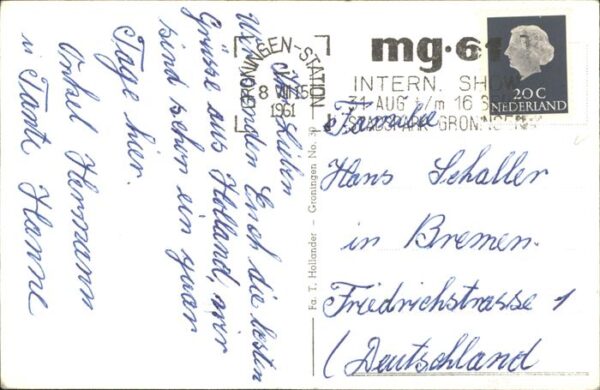 Ihr Lieben
Wir senden Euch die besten
Grüsse aus Holland, wir
sind schon ein paar
Tage hier.
Onkel Hermann
u Tante Hanne
Fa. T. Hollander - Groningen No. 39
GRONINGEN-STATION
8 VIII 15
1961
mg·61
INTERN. SHOW
31 AUG t/m 16 S
STADSPARK GRONINGEN
20 C
NEDERLAND
Familie
Hans Schaller
in Bremen.
Friedrichstrasse 1
(Deutschland